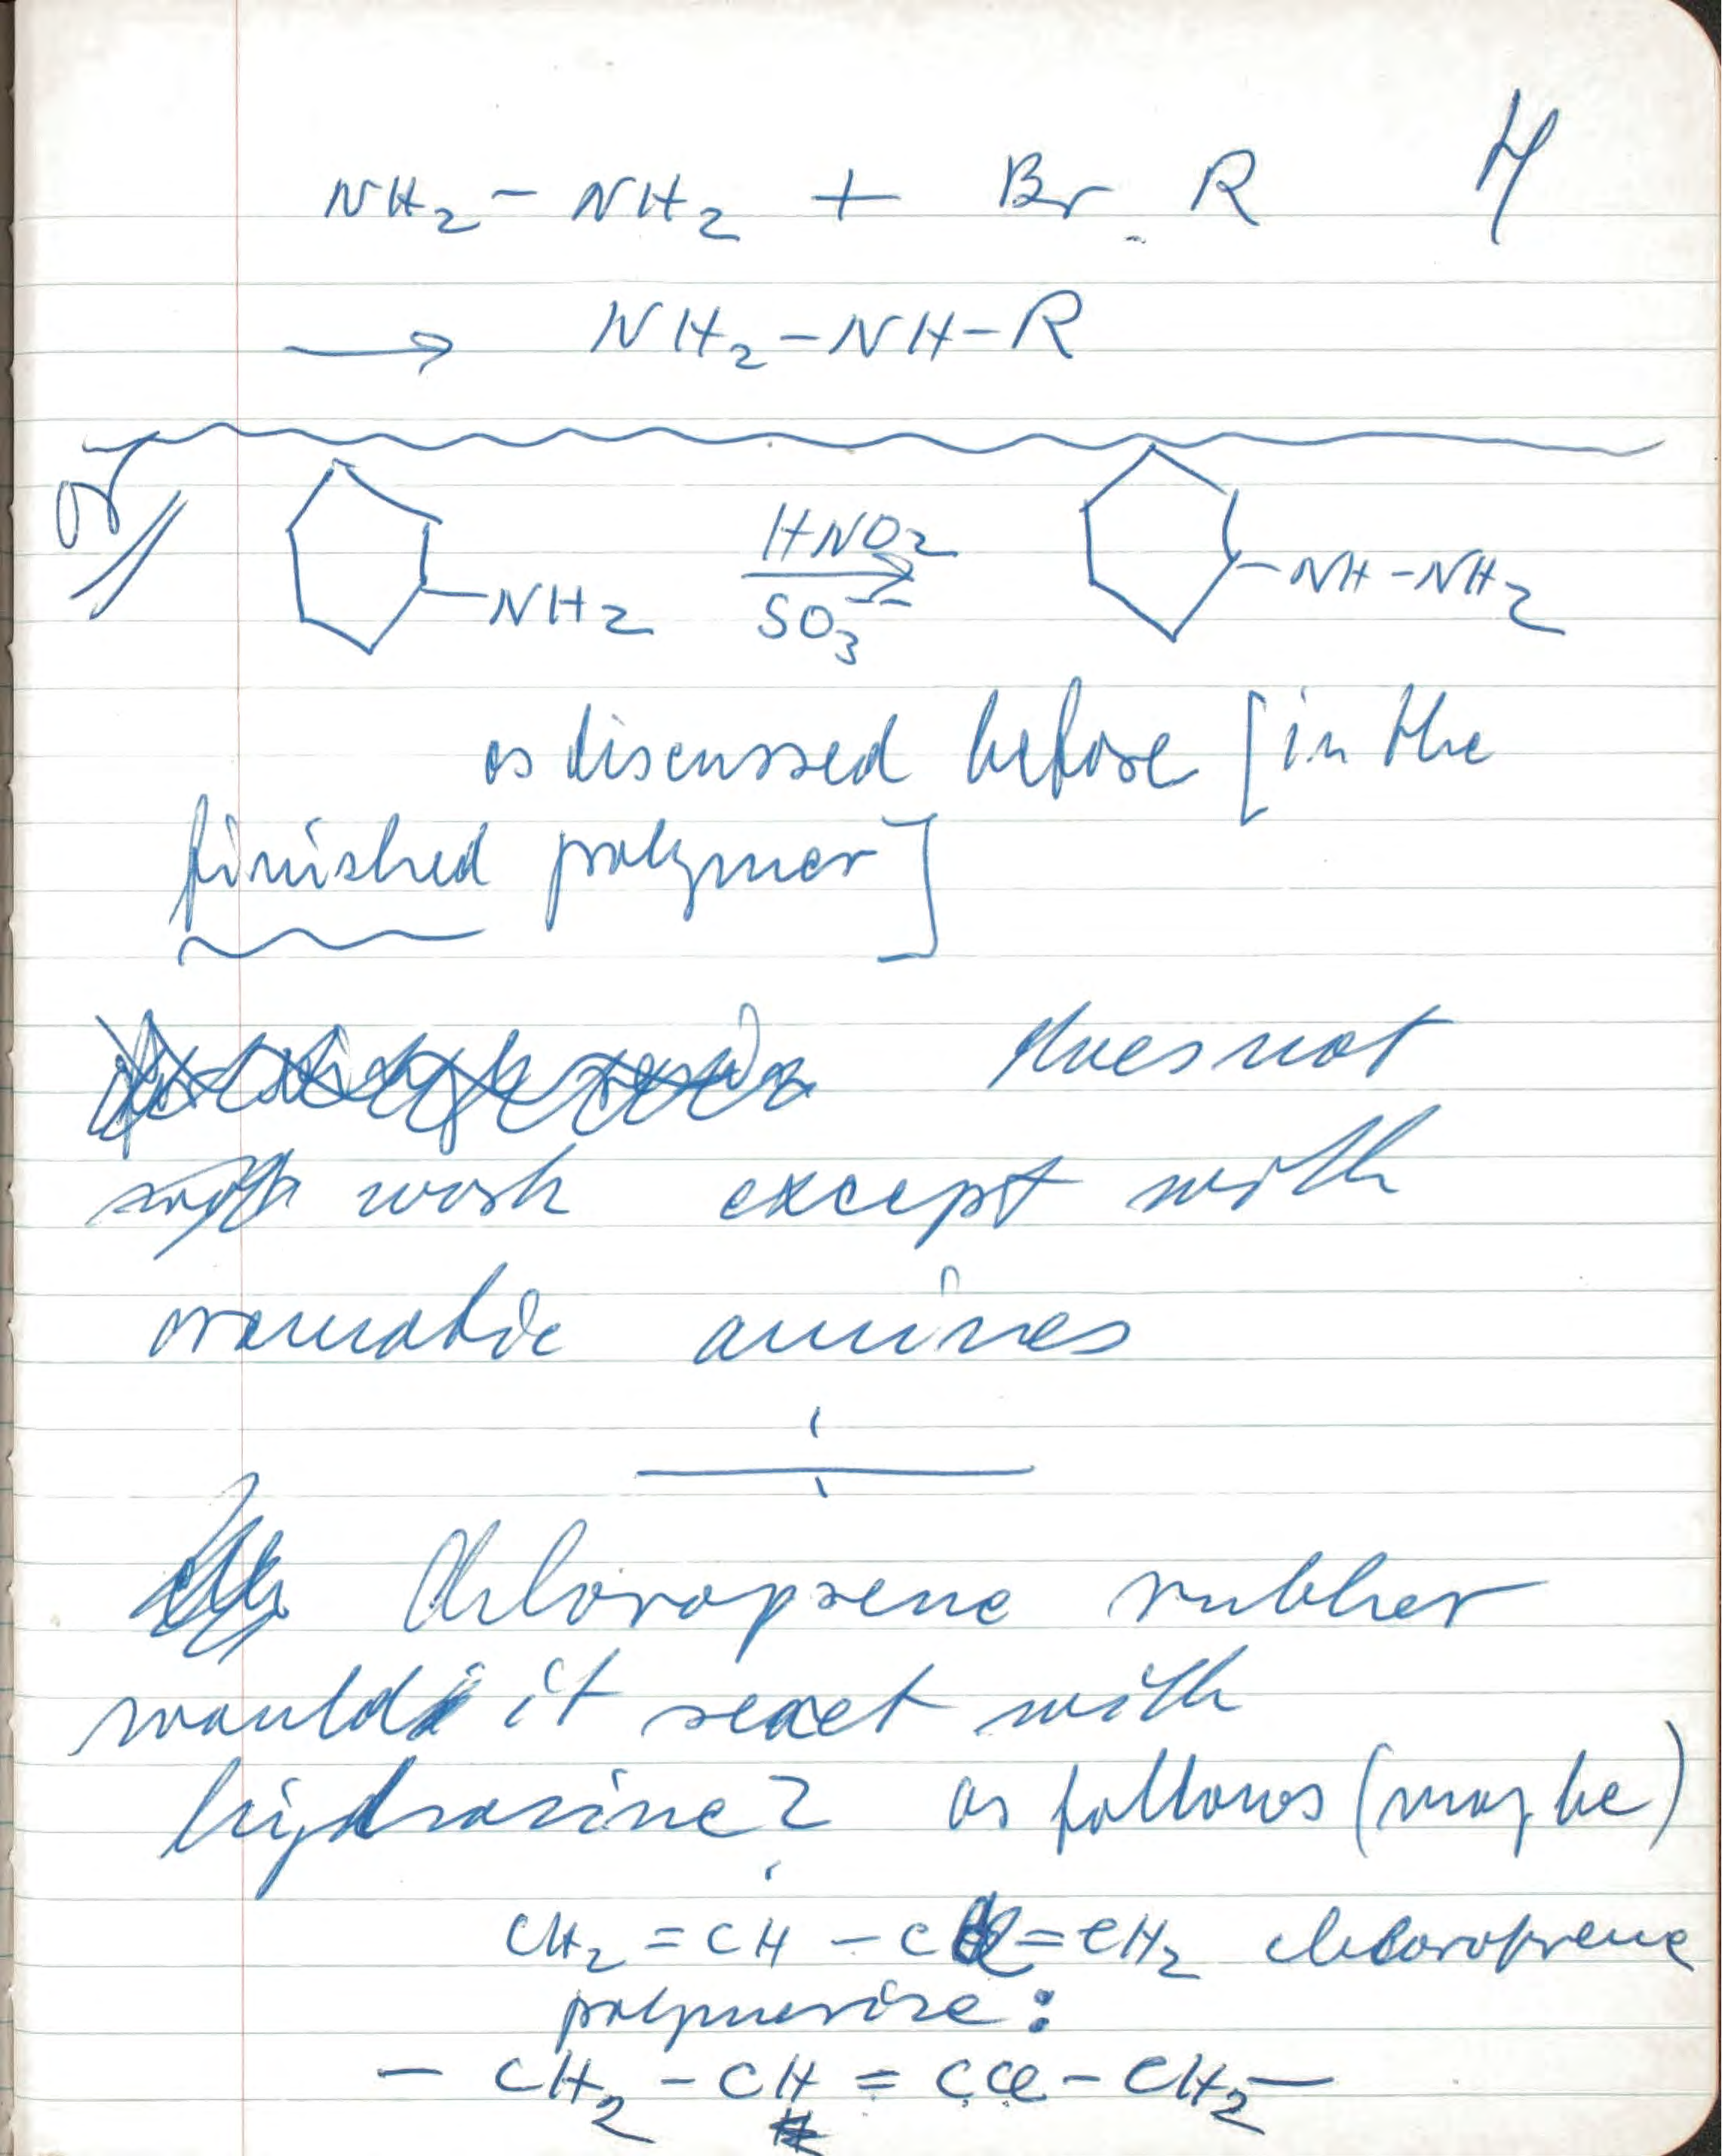 NH₂ - NH₂ + Br R
→ NH₂ - NH - R
or
NH₂ HNO₂ → SO₃⁻⁻ NH - NH₂
as discussed before [in the
finished polymer]
does not
work except with
aromatic amines
Chloroprene rubber
would it react with
hydrazine? as follows (maybe)
CH₂ = CH - CCl = CH₂ chloroprene
polymerize:
- CH₂ - CH = CCl - CH₂ -